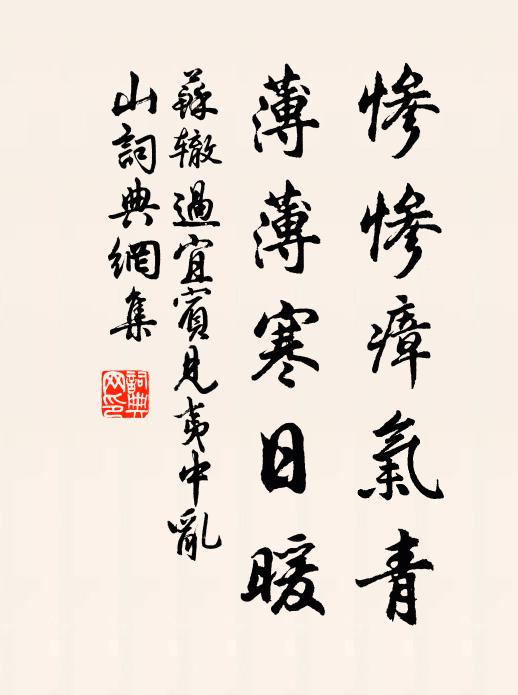 慘慘瘴氣青
薄薄寒日暖
蘇轍過宜賓見夷中亂
山詞典網集
詞典
网印